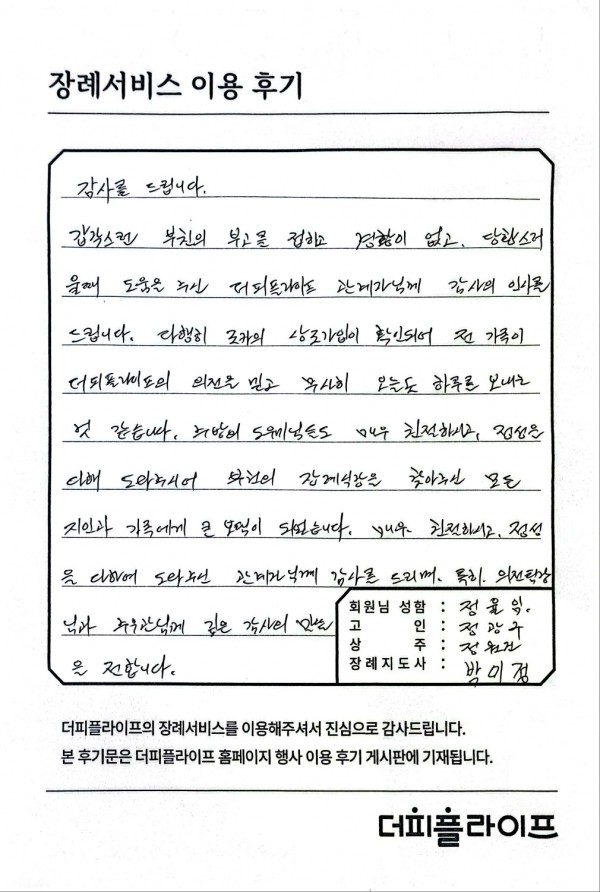 장례서비스 이용 후기
감사를 드립니다.
갑작스런 부친의 부고를 접하고 경황이 없고, 당황스러
울때 도움을 주신 더피플라이프 관계자님께 감사의 인사를
드립니다. 다행히 조카의 상조가입이 확인되어 전 가족이
더피플라이프의 의전을 믿고 무사히 오늘도 하루를 보내는
것 같습니다. 주방의 도우미님들도 매우 친절하시고, 정성을
다해 도와주시어 부친의 장례식장을 찾아주신 모든
지인과 가족에게 큰 도움이 되었습니다. 매우 친절하시고, 정성
을 다하여 도와주신 관계자님께 감사를 드리며. 특히. 의전팀장
님과 주무관님께 깊은 감사의 말씀
을 전합니다.
회원님 성함 : 정율
고 인 : 정광수
상 주 : 정원진
장례지도사 : 박미정
더피플라이프의 장례서비스를 이용해주셔서 진심으로 감사드립니다.
본 후기문은 더피플라이프 홈페이지 행사 이용 후기 게시판에 기재됩니다.
더피플라이프